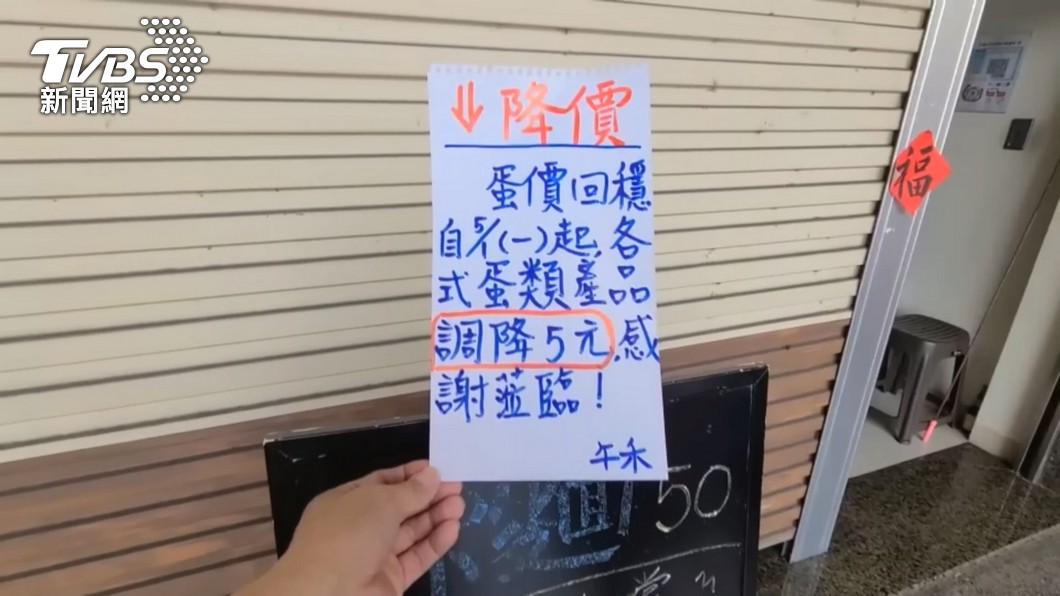 TVBS
新聞網
↓降價
蛋價回穩
自5/1(一)起,各
式蛋類產品
調降5元,感
謝蒞臨!
午禾
福
50